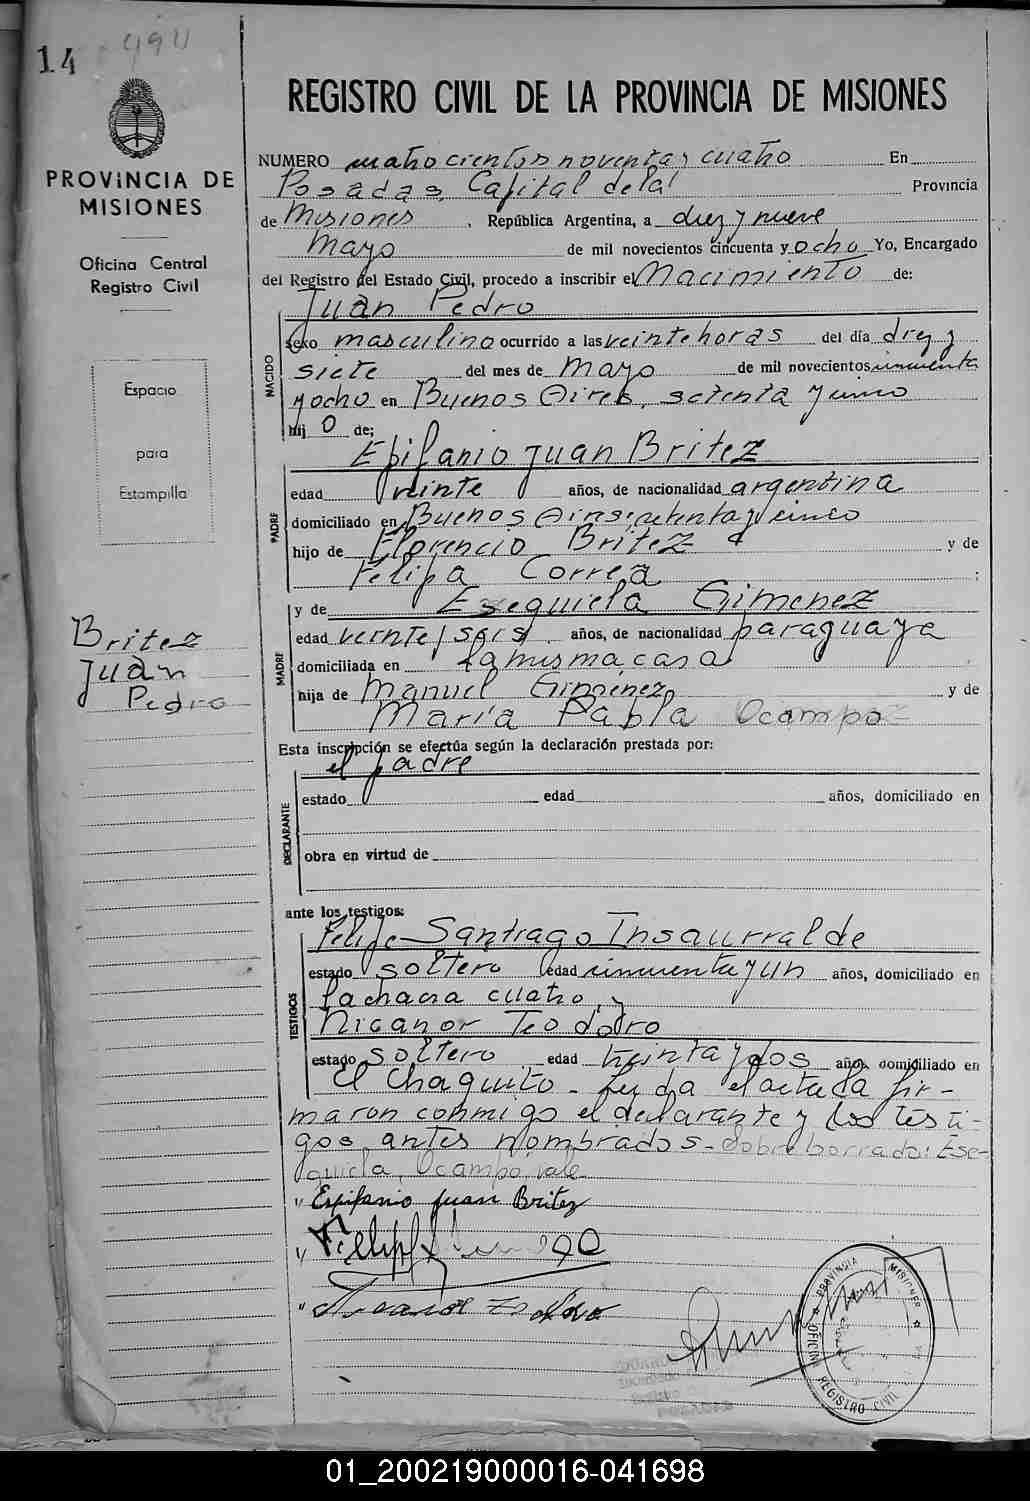 14
494
PROVINCIA DE
MISIONES
Oficina Central
Registro Civil
Espacio
para
Estampilla
Britez
Juan
Pedro
REGISTRO CIVIL DE LA PROVINCIA DE MISIONES
NUMERO cuatrocientos noventa y cuatro En
Posadas, Capital de la Provincia
de Misiones, República Argentina, a diez y nueve
Mayo de mil novecientos cincuenta y ocho Yo, Encargado
del Registro del Estado Civil, procedo a inscribir el Nacimiento de:
Juan Pedro
NACIDO
sexo masculino ocurrido a las veinte horas del día diez y
siete del mes de Mayo de mil novecientos cincuenta
y ocho en Buenos Aires, setenta y cinco
hij o de;
Epifanio Juan Britez
PADRE
edad veinte años, de nacionalidad argentina
domiciliado en Buenos Aires setenta y cinco
hijo de Florencio Britez y de
Felipa Correa ;
y de Esequiela Gimenez
MADRE
edad veinte y seis años, de nacionalidad paraguaya
domiciliada en la misma casa
hija de Manuel Gimenez y de
María Pabla Ocampo
Esta inscripción se efectúa según la declaración prestada por:
el padre
DECLARANTE
estado edad años, domiciliado en
obra en virtud de
ante los testigos:
Felipe Santiago Insaurralde
TESTIGOS
estado soltero edad cincuenta y un años, domiciliado en
la chacra cuatro, y
Nicanor Teodoro
estado soltero edad treinta y dos años domiciliado en
el chaquito - Leída el acta la fir-
maron conmigo el declarante y los testi-
gos antes nombrados - sobre borrado: Ese-
quiela, Ocampo, vale
" Epifanio Juan Britez
" Felipe
"
PROVINCIA MISIONES
OFICINA REGISTRO CIVIL
01_200219000016-041698